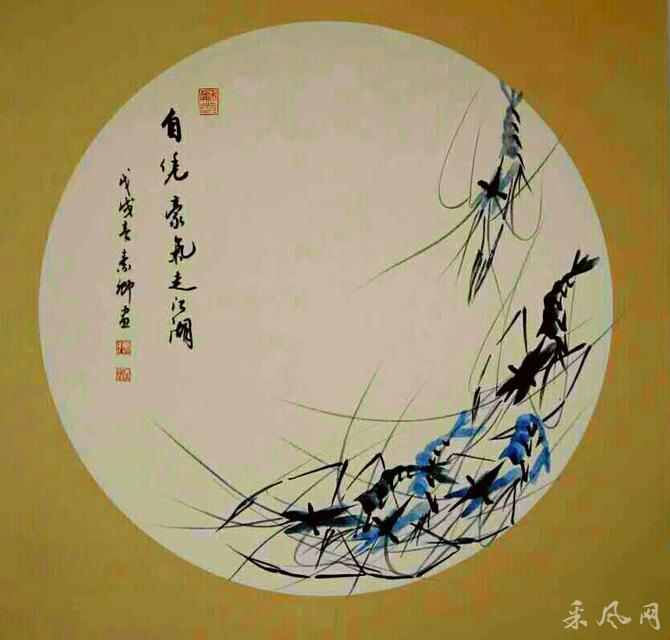 自凭豪氣走江湖
戊戌春素卿画
采风网